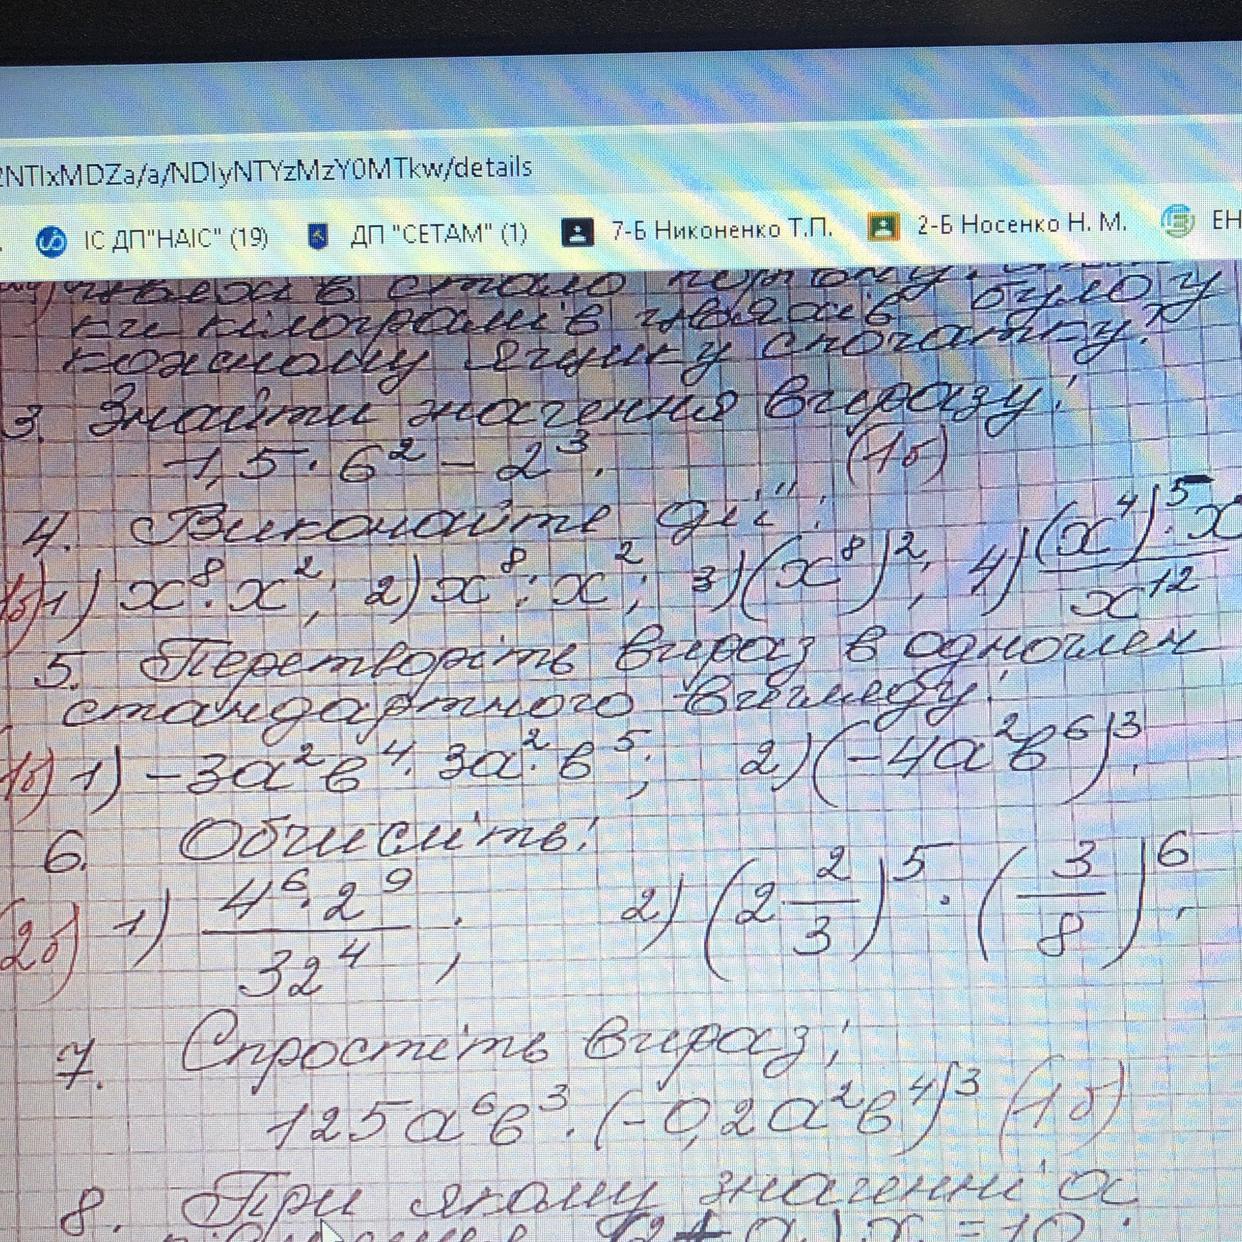 2NTIxMDZa/a/NDIyNTYzMzY0MTkw/details
ІС ДП"НАІС" (19) ДП "СЕТАМ" (1) 7-Б Никоненко Т.П. 2-Б Носенко Н. М. ЕН
в стало було у
кілограмів
кожному ящику спочатку?
3. Знайти значення виразу:
1,5 · 6² − 2³. (1б)
4. Виконайте дії:
1) x⁸ · x²; 2) x⁸ : x²; 3) (x⁸)²; 4) (x⁴)⁵ · x / x¹²
5. Перетворіть вираз в одночлен
стандартного вигляду:
(1б) 1) −3a²b⁴ · 3a² · b⁵; 2) (−4a²b⁶)³.
6. Обчисліть:
(2б) 1) 4⁶ · 2⁹ / 32⁴; 2) (2 2/3)⁵ · (3/8)⁶.
7. Спростіть вираз:
125a⁶b³ · (−0,2a²b⁴)³ (1б)
8. При якому значенні a